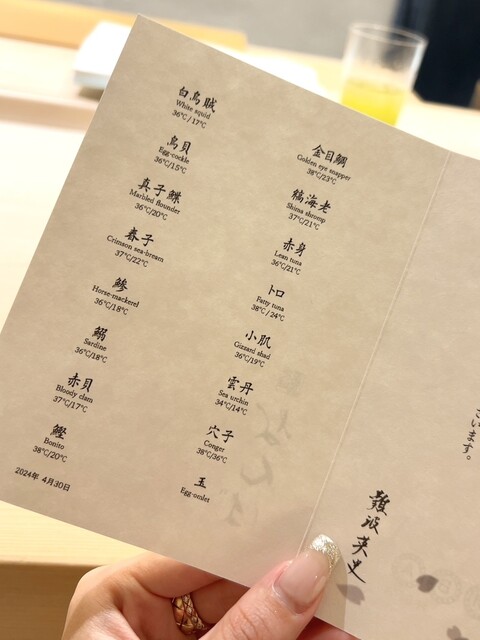 白烏賊
White squid
36℃/17℃
鳥貝
Egg-cockle
36℃/15℃
真子鰈
Marbled flounder
36℃/20℃
春子
Crimson sea-bream
37℃/22℃
鯵
Horse-mackerel
36℃/18℃
鰯
Sardine
36℃/18℃
赤貝
Bloody clam
37℃/17℃
鰹
Bonito
38℃/20℃
2024年 4月30日
金目鯛
Golden eye snapper
38℃/23℃
縞海老
Shima shroomp
37℃/21℃
赤身
Lean tuna
36℃/21℃
トロ
Fatty tuna
38℃/24℃
小肌
Gizzard shad
36℃/19℃
雲丹
Sea urchin
34℃/14℃
穴子
Conger
38℃/36℃
玉
Egg-omlet
ございます。
難波英史